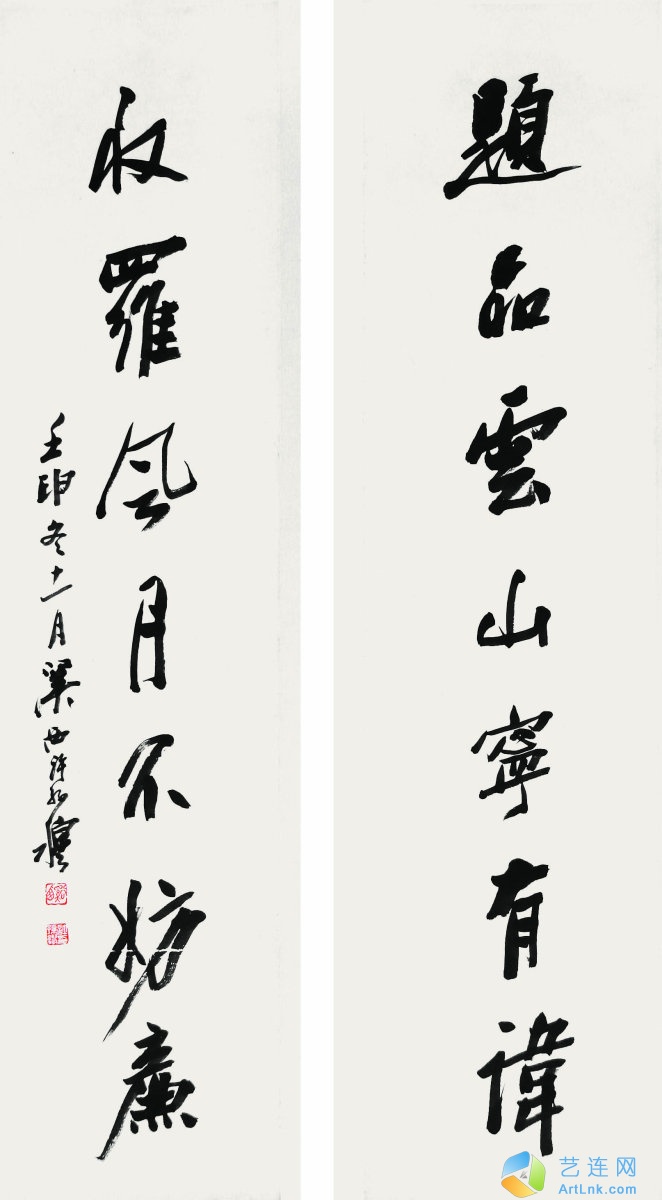 題品雲山寧有諱
收羅風月不妨廉
壬申冬十一月
艺连网
ArtLnk.com